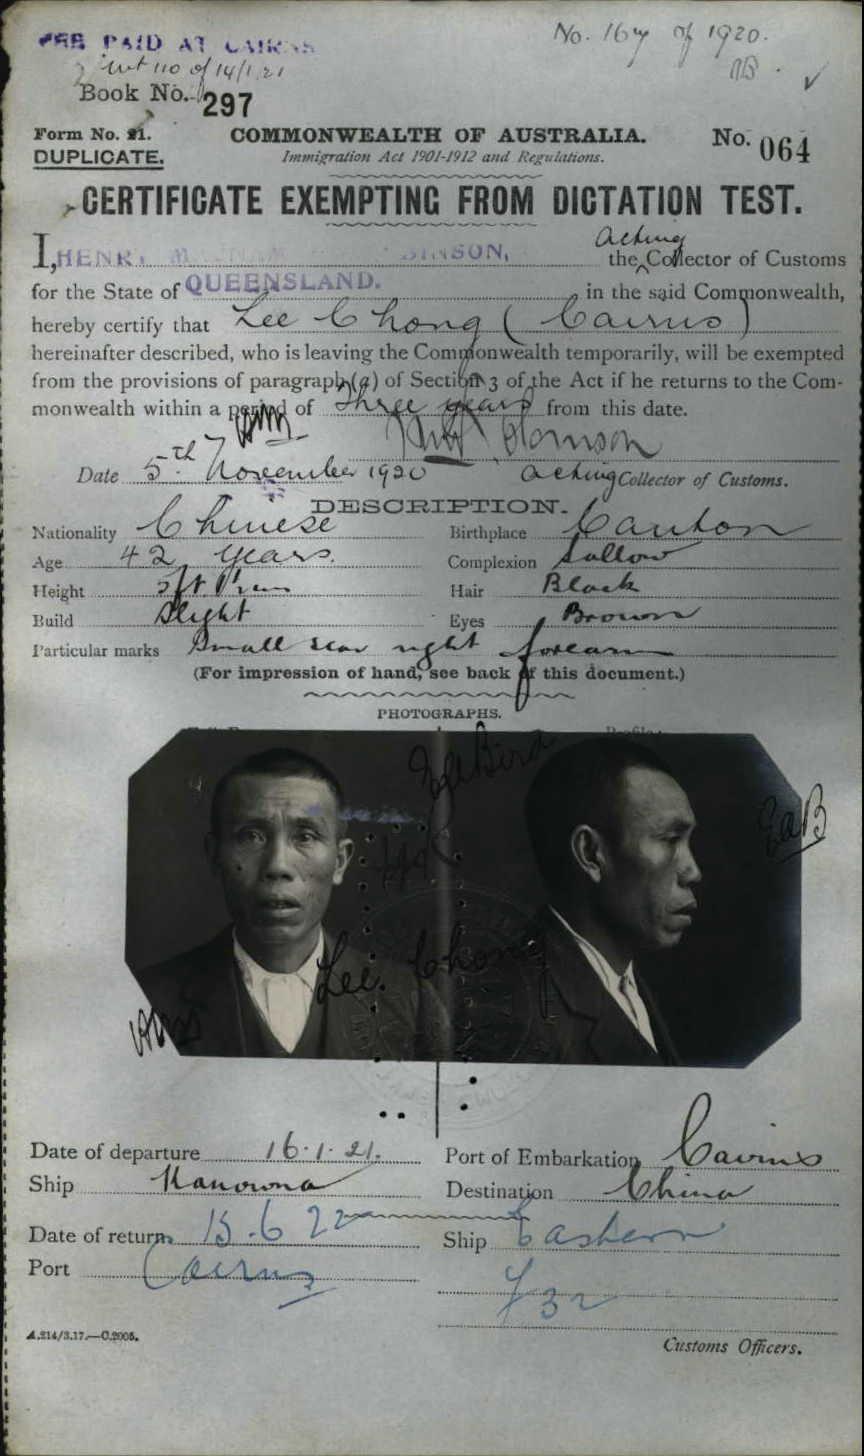 FEE PAID AT CAIRNS
No. 167 of 1920.
110 of 14/1/21
Book No. 297
Form No. 21.
DUPLICATE.
COMMONWEALTH OF AUSTRALIA.
Immigration Act 1901-1912 and Regulations.
No. 064
CERTIFICATE EXEMPTING FROM DICTATION TEST.
acting
I, HENRY BINSON, the Collector of Customs
for the State of QUEENSLAND. in the said Commonwealth,
hereby certify that Lee Chong (Cairns)
hereinafter described, who is leaving the Commonwealth temporarily, will be exempted
from the provisions of paragraph (a) of Section 3 of the Act if he returns to the Com-
monwealth within a period of Three years from this date.
Date 5th November 1920 acting Collector of Customs.
DESCRIPTION.
Nationality Chinese Birthplace Canton
Age 42 years. Complexion Sallow
Height 5ft Hair Black
Build Slight Eyes Brown
Particular marks Small scar right forearm
(For impression of hand, see back of this document.)
PHOTOGRAPHS.
EaBird
EaB
Lee Chong
Date of departure 16.1.21. Port of Embarkation Cairns
Ship Kanowna Destination China
Date of return 15.6.22 Ship Eastern
Port Cairns
A.214/3.17.—C.2005.
Customs Officers.